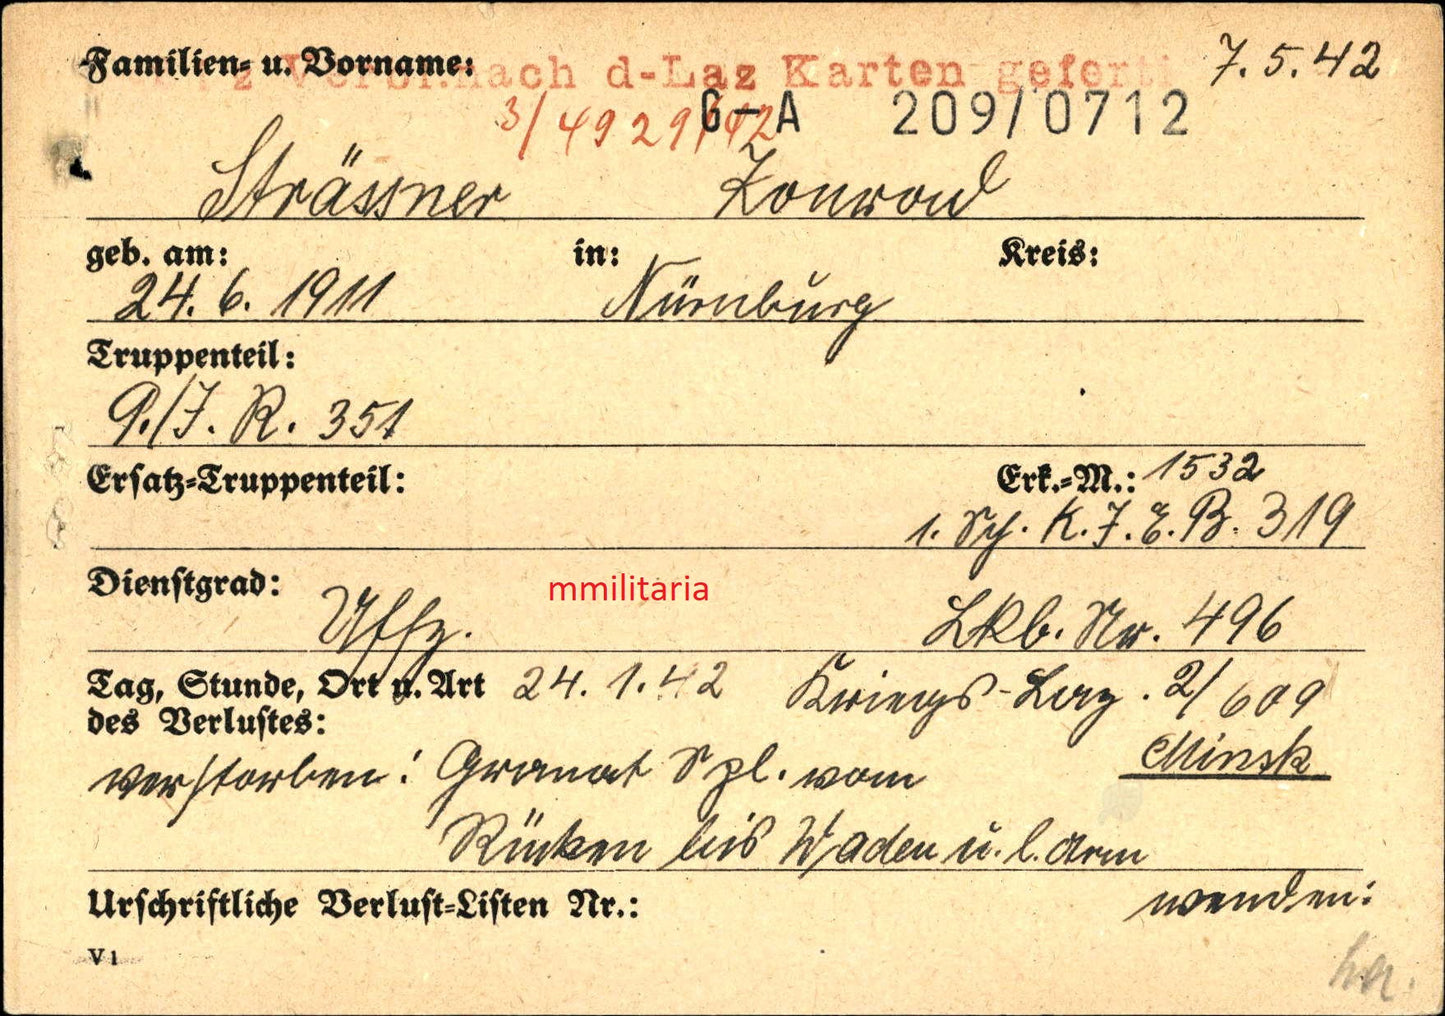 Familien- u. Vorname: nach d-Laz Karten geferti 7.5.42
3/4929/42 G-A 209/0712
Strässner Konrad
geb. am: in: Kreis:
24. 6. 1911 Nürnburg
Truppenteil:
9./I. R. 351
Ersatz-Truppenteil: Erk.-M.: 1532
1. Sch. K. I. E. B. 319
Dienstgrad: mmilitaria
Uffz. Lkb. Nr. 496
Tag, Stunde, Ort u. Art 24. 1. 42 Kriegs-Laz. 2/609
des Verlustes: Minsk
verstorben: Granat Spl. vom
Rücken bis Waden u. l. Arm
Urschriftliche Verlust-Listen Nr.: wenden:
V 1